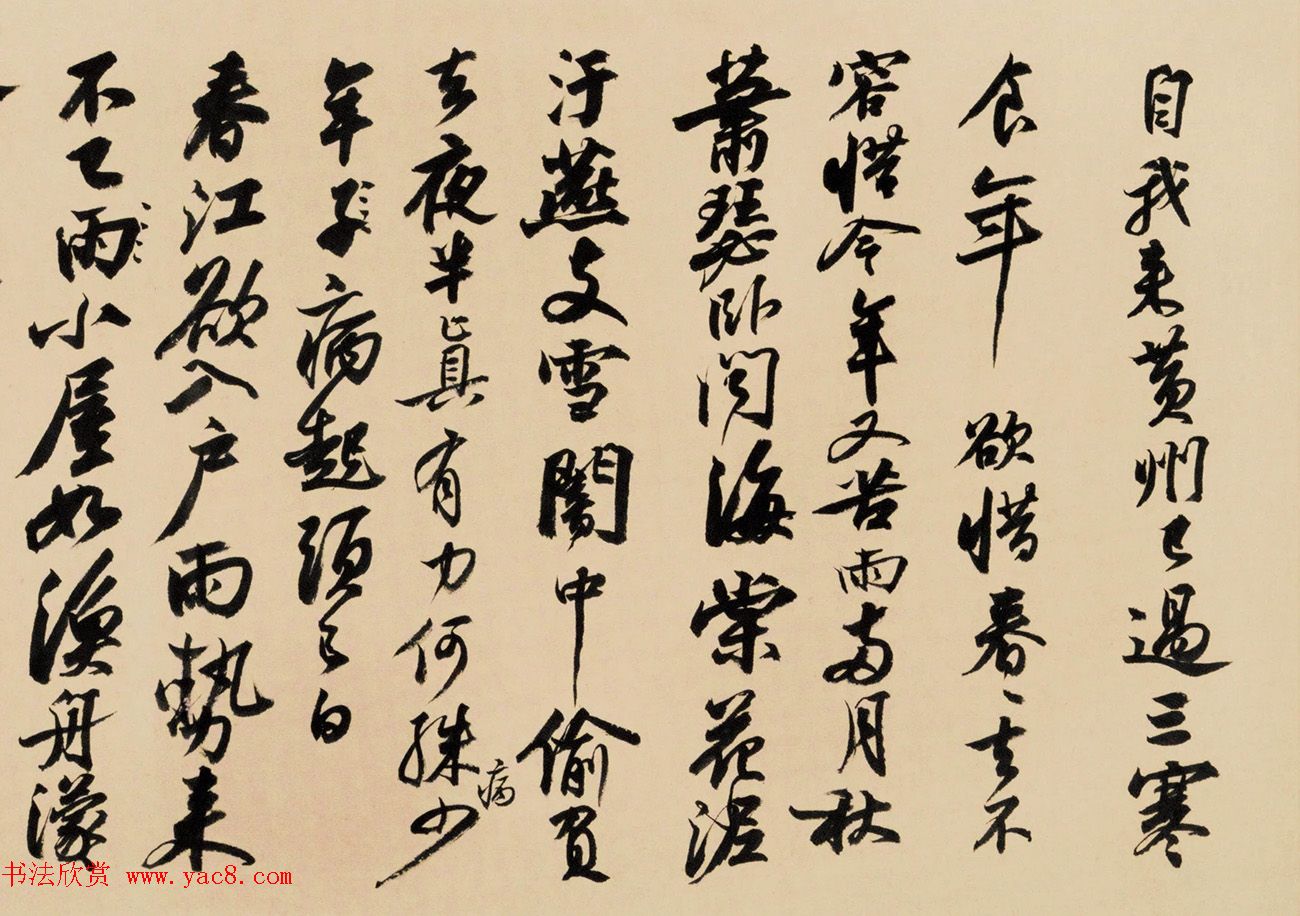 自我来黄州已過三寒
食年欲惜春〻去不
容惜今年又苦雨兩月秋
蕭瑟卧聞海棠花泥
汙燕支雪闇中偷負
去夜半真有力何殊少病
年子病起頭已白
春江欲入户雨勢来
不已雨小屋如漁舟濛
书法欣赏 www.yac8.com